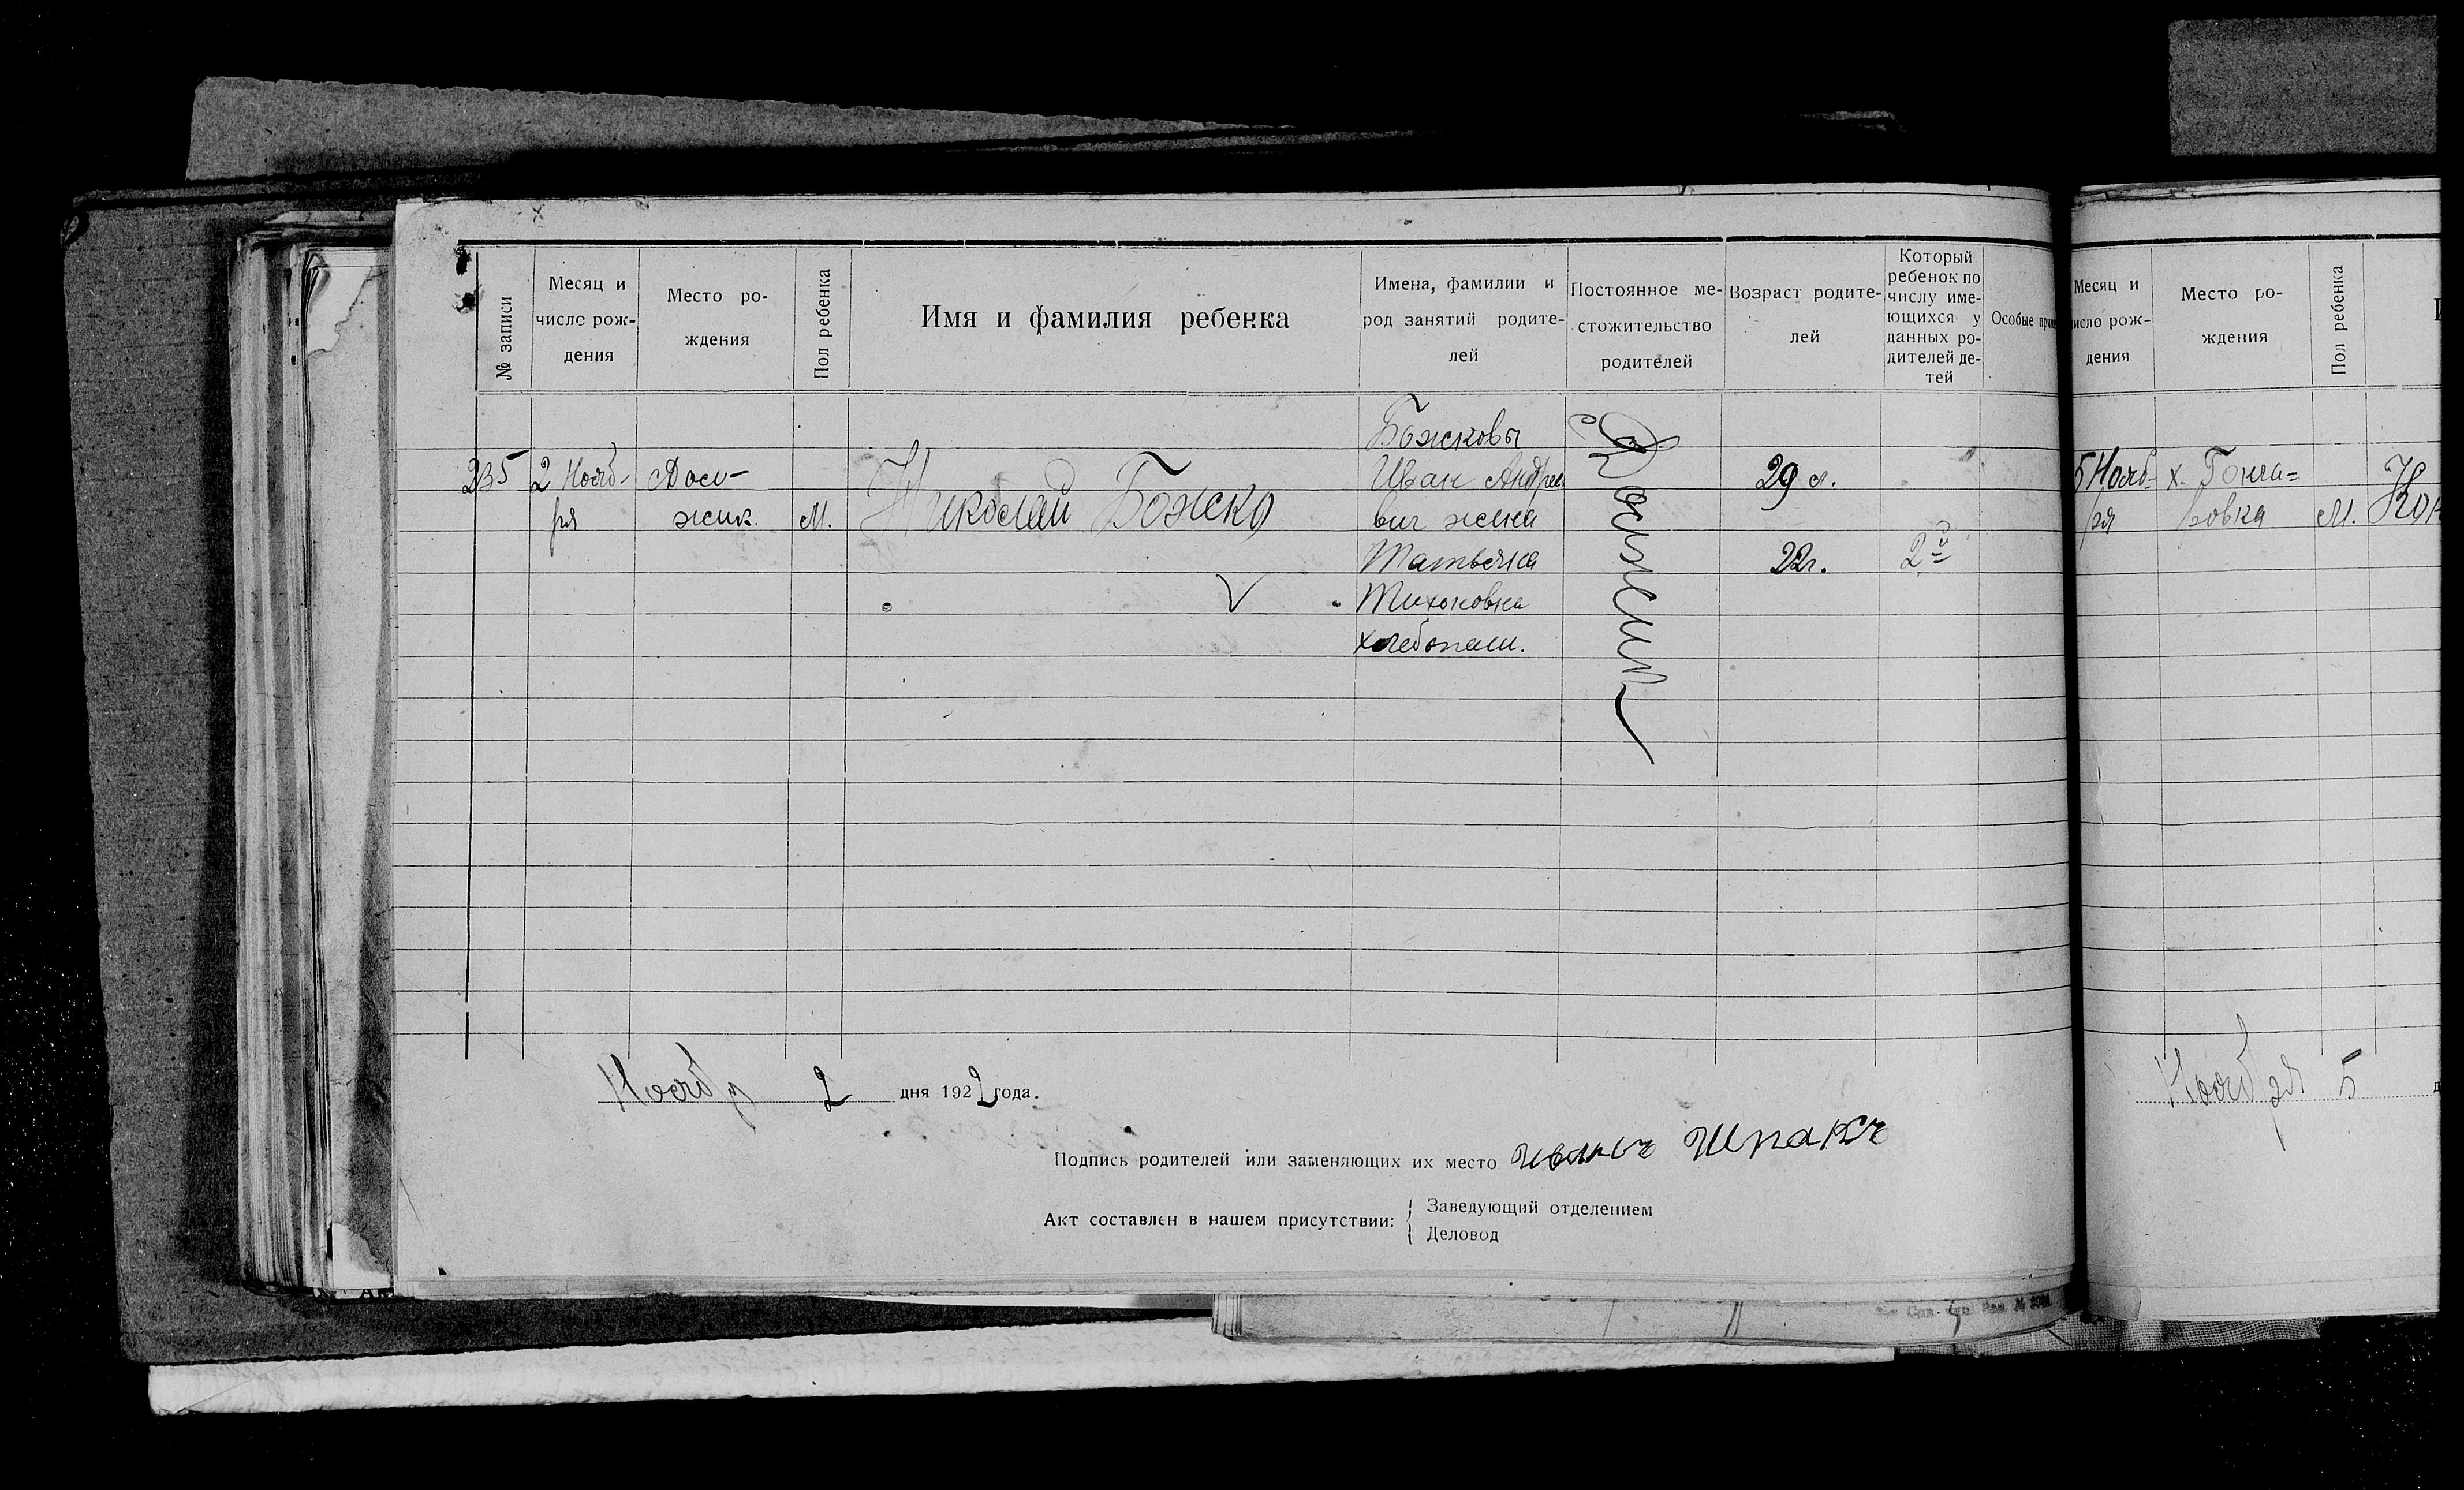 № записи
Месяц и
число рож-
дения
Место ро-
ждения
Пол ребенка
Имя и фамилия ребенка
Имена, фамилии и
род занятий родите-
лей
Постоянное ме-
стожительство
родителей
Возраст родите-
лей
Который
ребенок по
числу име-
ющихся у
данных ро-
дителей де-
тей
Особые
Божковы
235 2 Нояб- Дол- Иван Андрее 29 л.
ря жик. М. Николай Божко вич жена
Татьяна 22 г. 2й
Тихоновна
хлебопаш.
с. Должик
Ноября 2 дня 1922 года.
Подпись родителей или заменяющих их место Иванъ Шпакъ
Акт составлен в нашем присутствии:
Заведующий отделением
Деловод
Месяц и
число рож-
дения
Место ро-
ждения
Пол ребенка
5 Нояб- х. Гонча=
ря ровка М.
Ноября 5